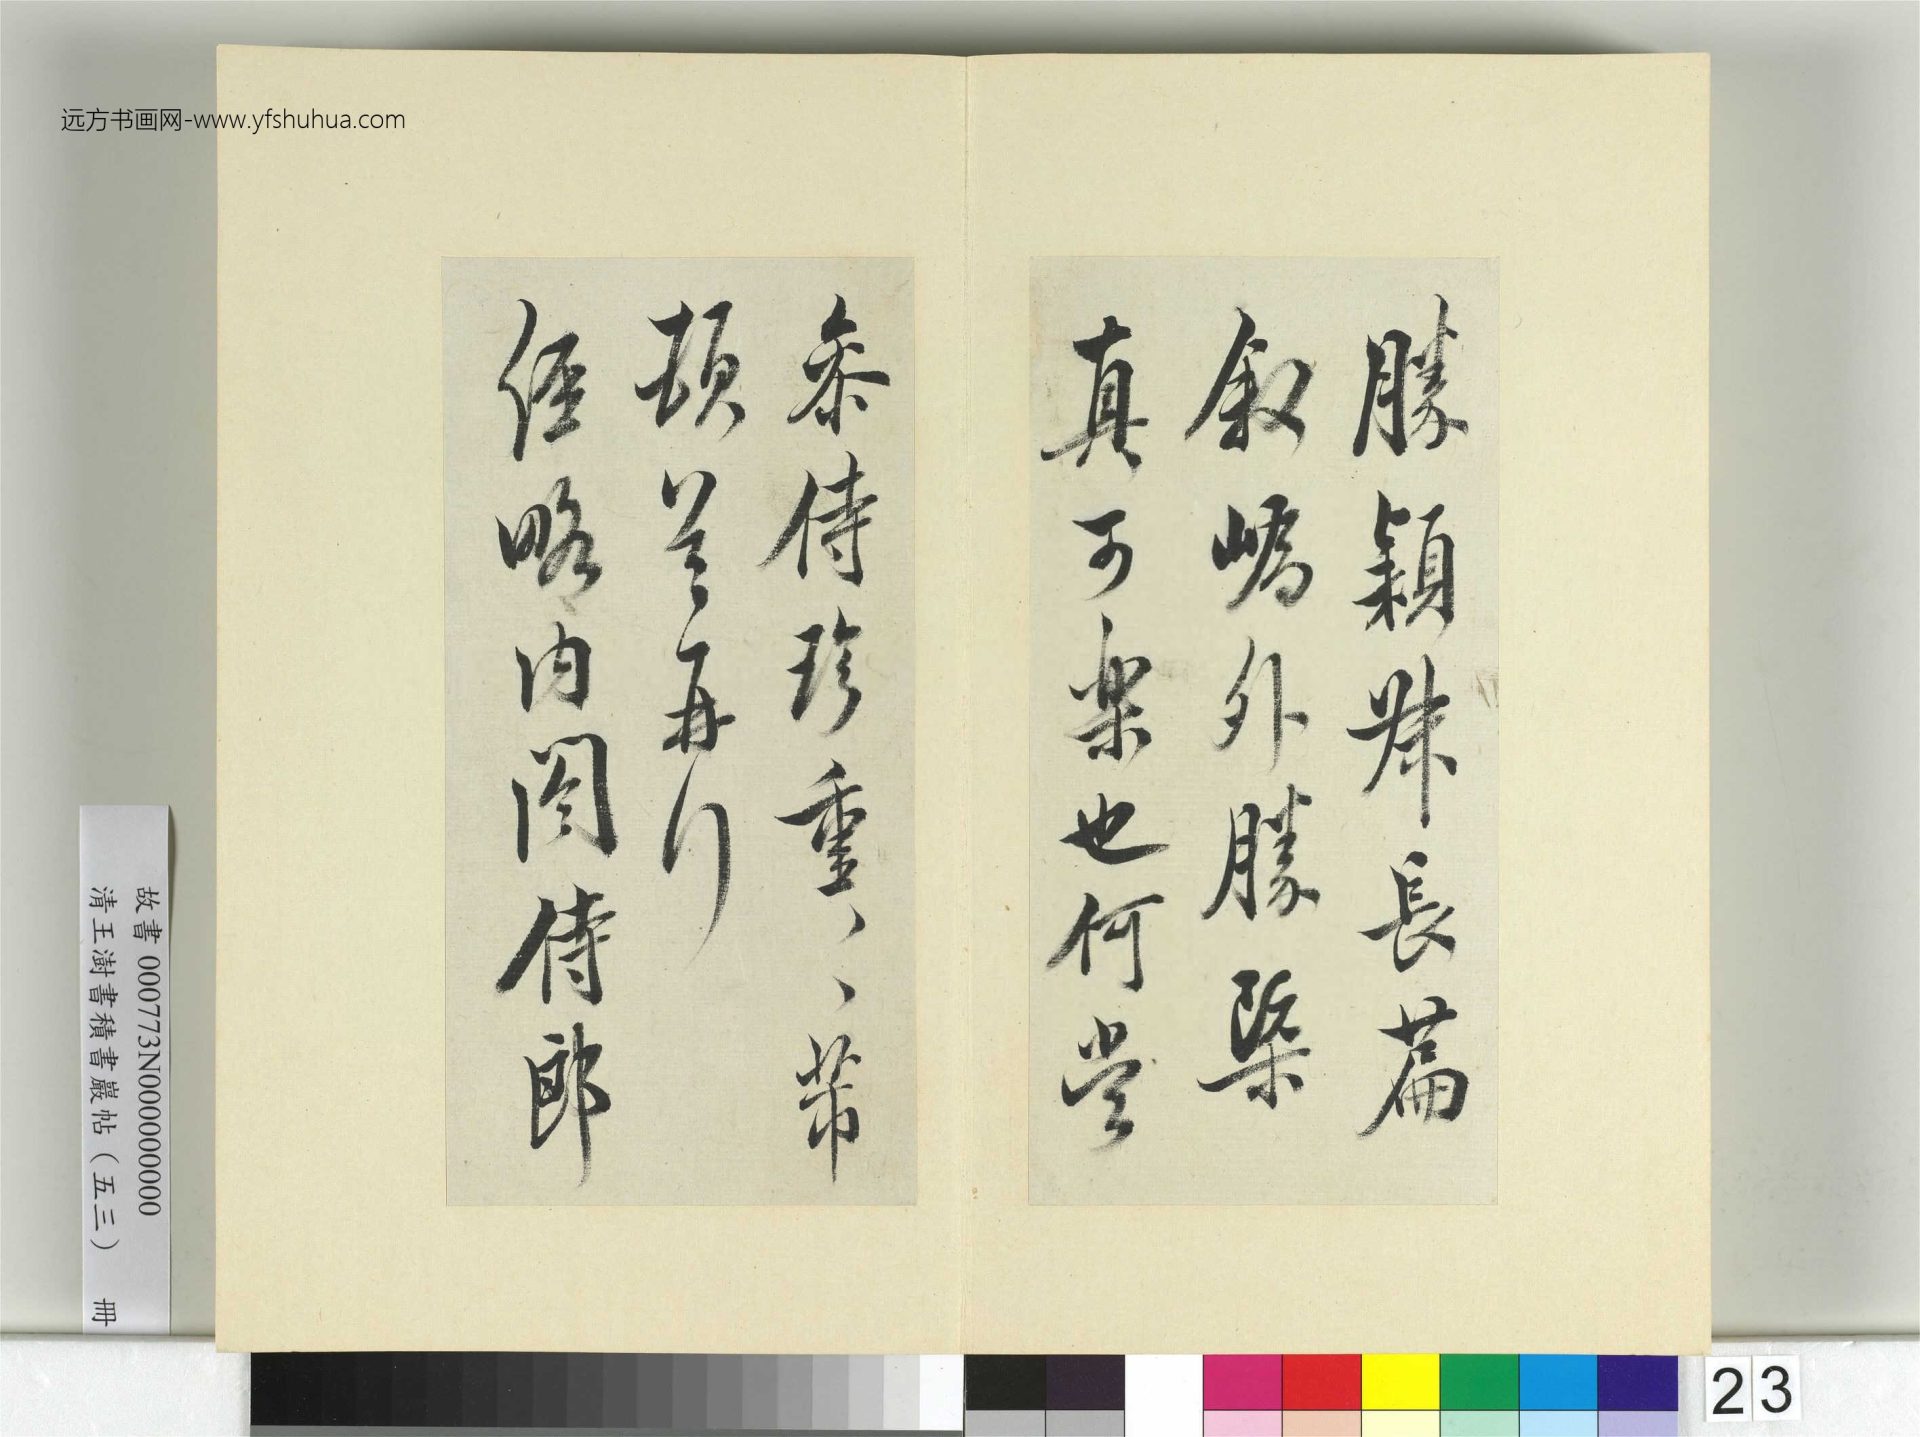 远方书画网-www.yfshuhua.com
勝穎叔長篇
敘嶠外勝槩
真可樂也何當
叅侍珍重、、芾
頓首再拜
經略內閣侍郎
故書 000773N000000000
清王澍書積書巖帖（五三） 冊
23